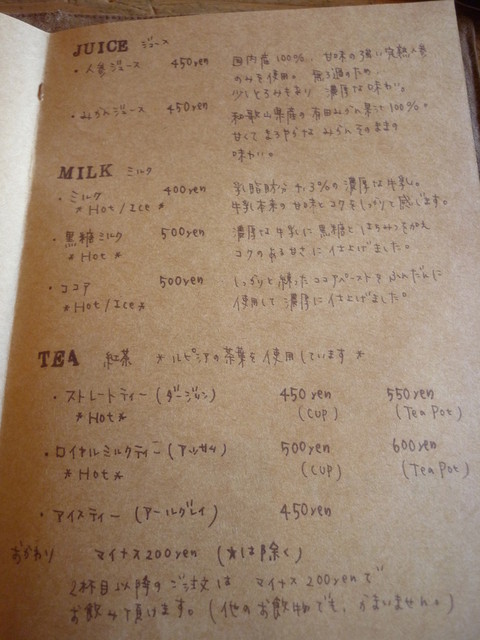 JUICE ジュース
・人参ジュース 450yen 国内産100%、甘味の強い完熟人参
のみを使用。無ろ過のため
少しとろみもあり濃厚な味わい。
・みかんジュース 450yen 和歌山県産の有田みかん果汁100%。
甘くてまろやかなみかんそのままの
味わい。
MILK ミルク
・ミルク 400yen 乳脂肪分4.3%の濃厚な牛乳。
*Hot/Ice* 牛乳本来の甘味とコクをしっかりと感じます。
・黒糖ミルク 500yen 濃厚な牛乳に黒糖とはちみつをくわえ
*Hot* コクのある甘さに仕上げました。
・ココア 500yen しっかりと練ったココアペーストをふんだんに
*Hot/Ice* 使用して濃厚に仕上げました。
TEA 紅茶 *ルピシアの茶葉を使用しています*
・ストレートティー(ダージリン) 450yen 550yen
*Hot* (Cup) (Tea Pot)
・ロイヤルミルクティー(アッサム) 500yen 600yen
*Hot* (Cup) (Tea Pot)
・アイスティー(アールグレイ) 450yen
おかわり マイナス200yen (*は除く)
2杯目以降のご注文は マイナス200yenで
お飲み頂けます。(他のお飲物でも、かまいません。)